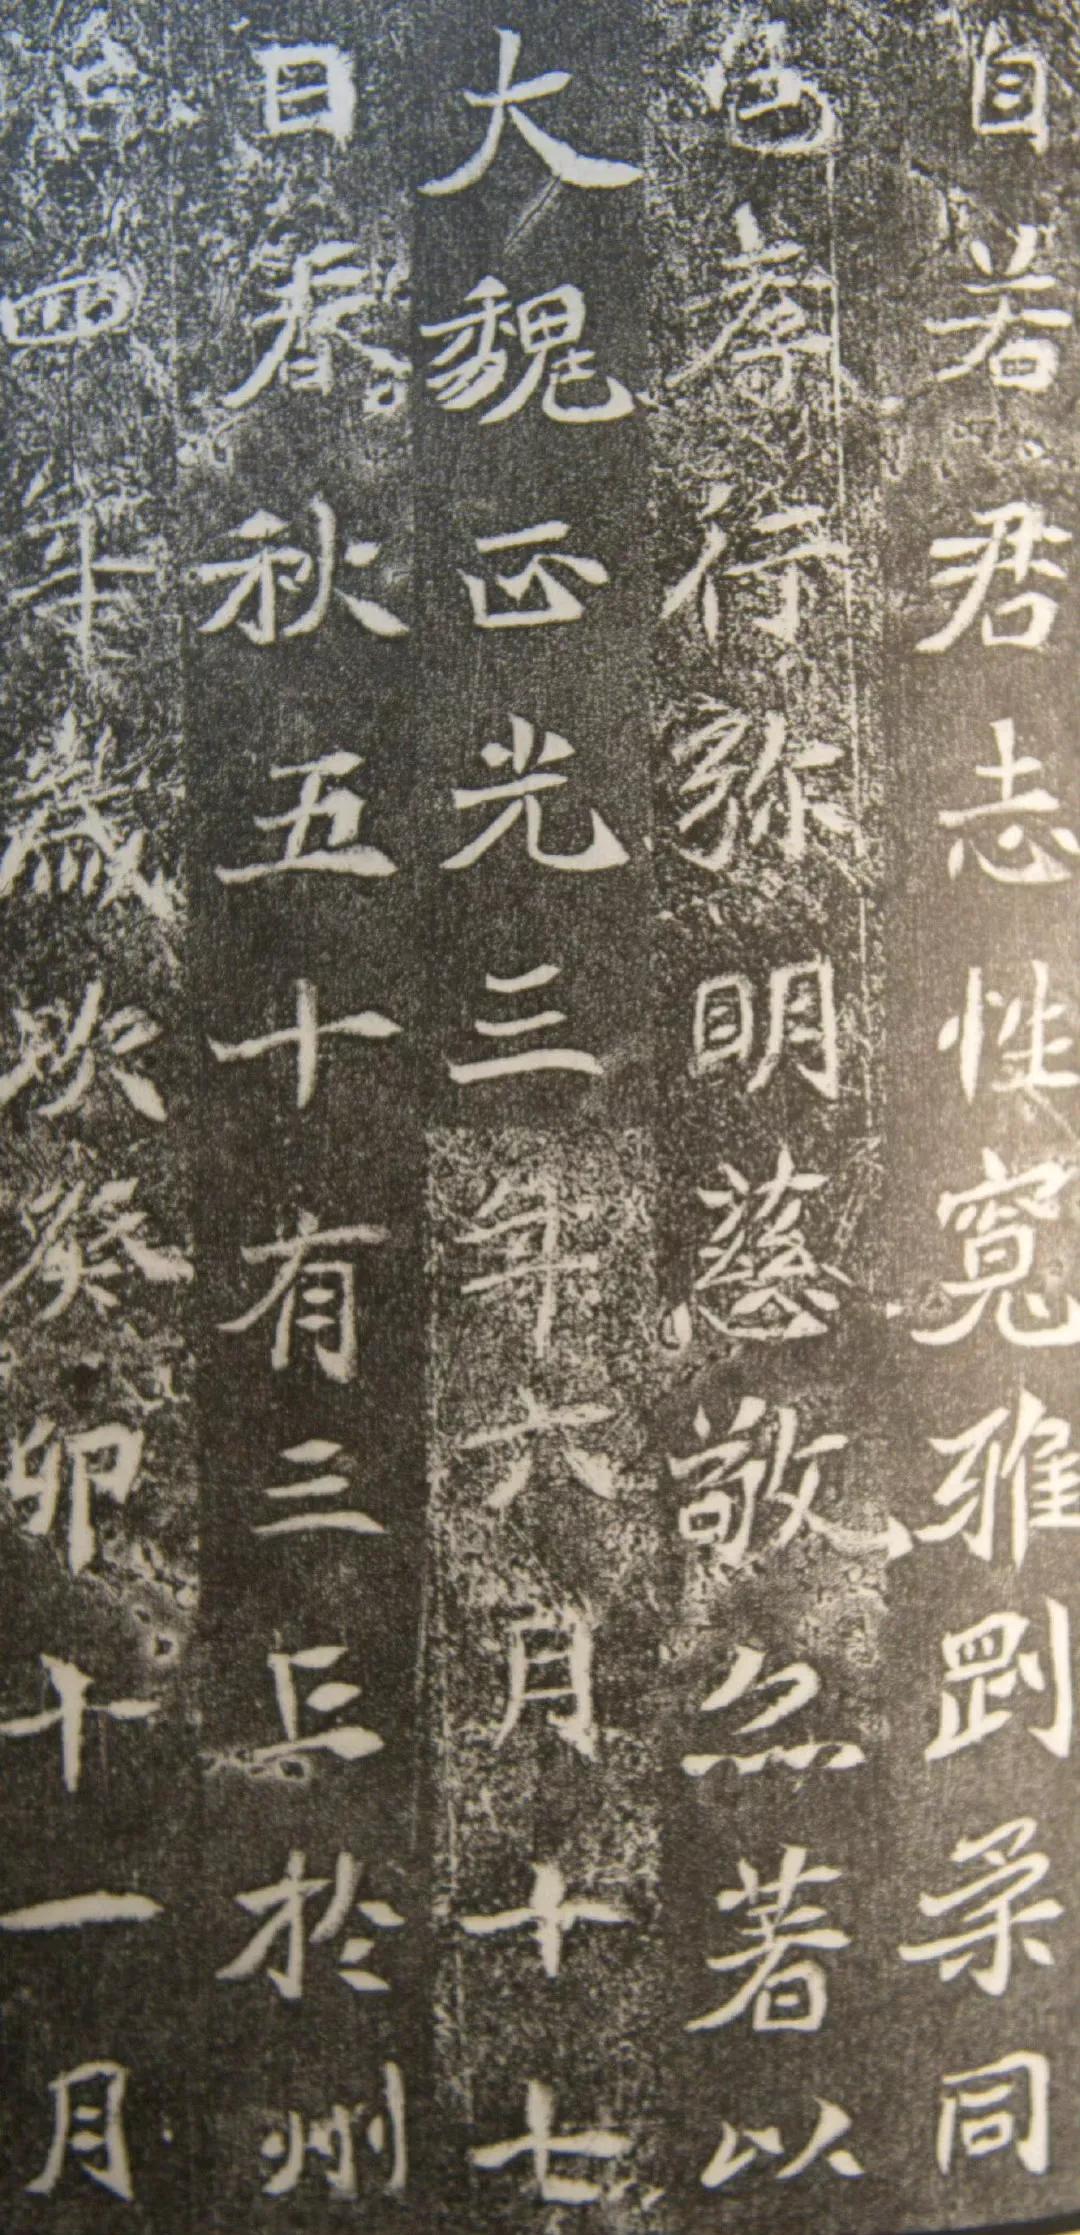 自若君志性寬雅剛柔同
孝行弥明慈敬著以
大魏正光三年六月十七
日春秋五十有三亡於州
四年歲次癸卯十一月